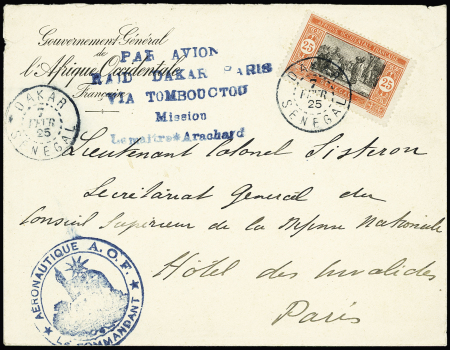 Gouvernement Général
de
l'Afrique Occidentale
Française
PAR AVION
RAID DAKAR PARIS
VIA TOMBOUCTOU
Mission
Lemaitre-Arachard
AFRIQUE OCCIDENTALE FRANÇAISE
25
25
DAKAR
7
FEVR
25
SENEGAL
DAKAR
7
FEVR
25
SENEGAL
Lieutenant Colonel Sisteron
Secrétariat General du
Conseil Supérieur de la Défense Nationale
Hôtel des Invalides
Paris
AERONAUTIQUE A.O.F.
LE COMMANDANT